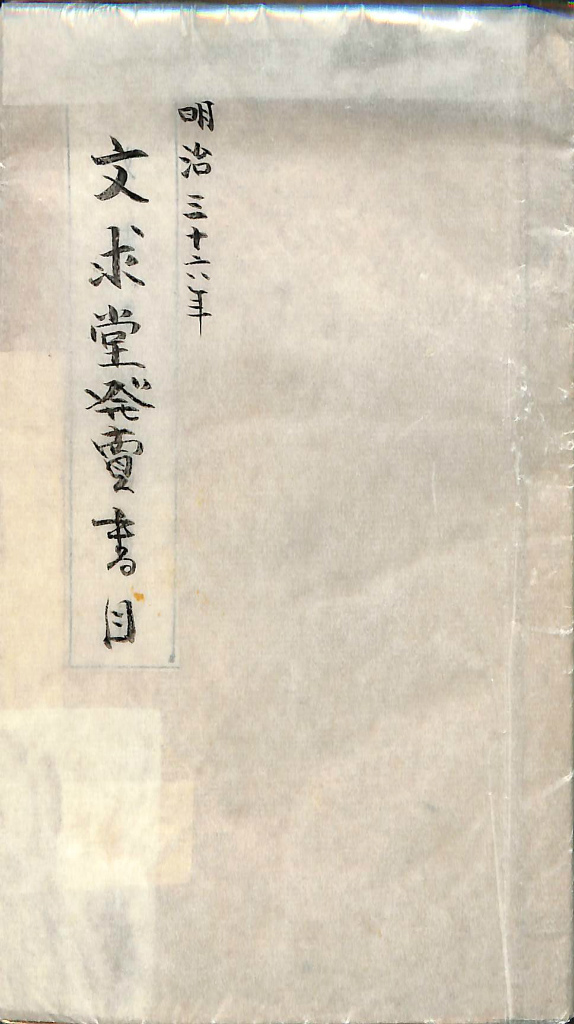 明治三十六年
文求堂発賣書目